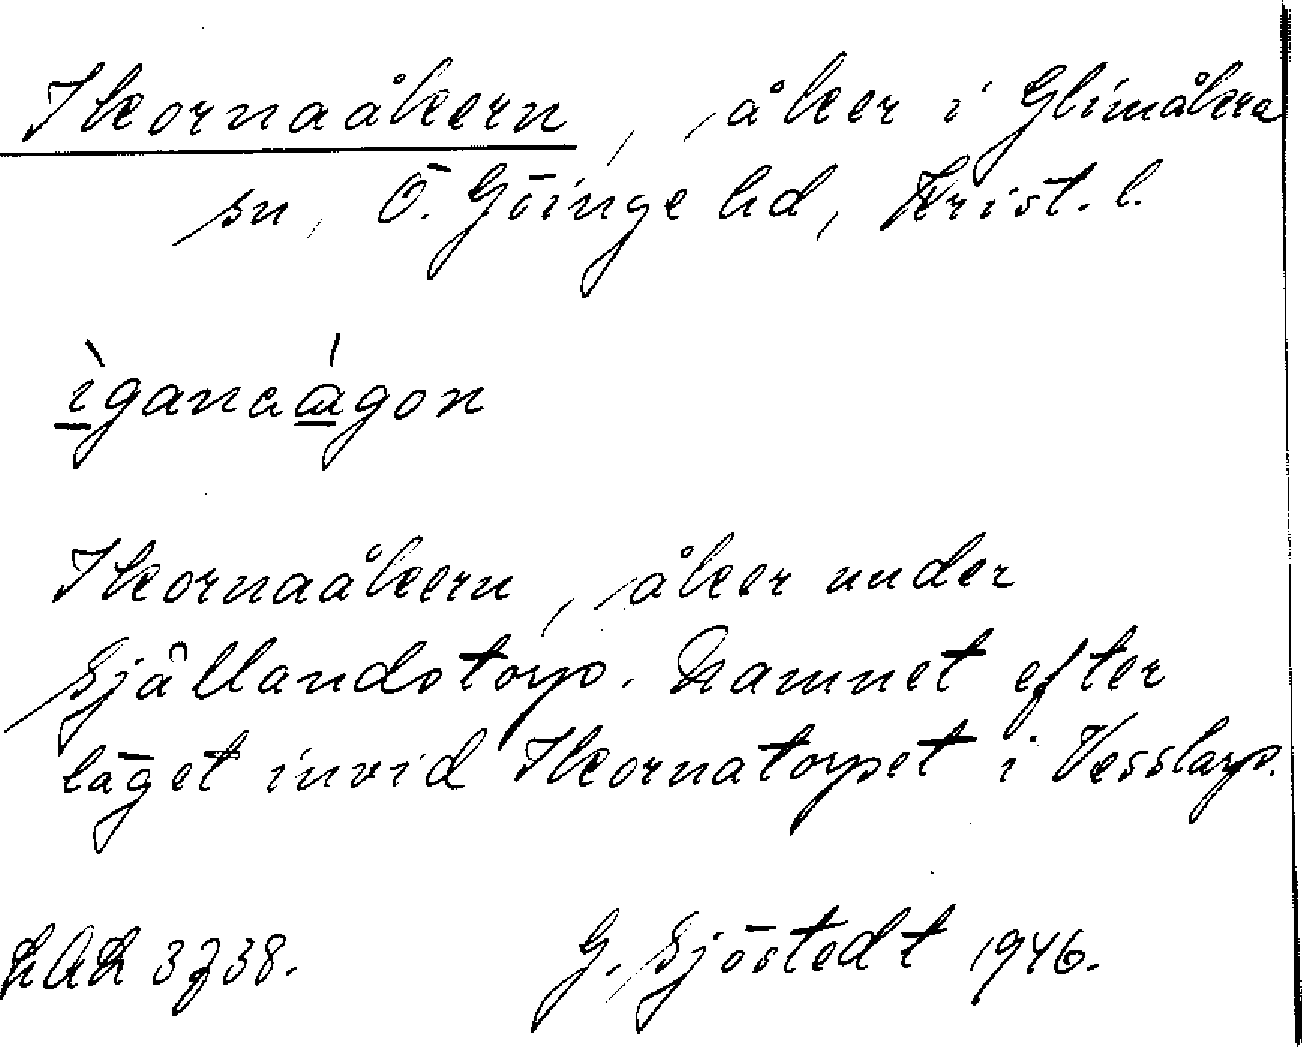 Ikornaåkern, åker i Glimåkra
sn, Ö. Göinge hd, Krist. l.
ìganaágon
Ikornaåkern, åker under
Sjållandstorp. Namnet efter
läget invid Ikornatorpet i Vesslarp.
LAL 3738. G. Sjöstedt 1946.